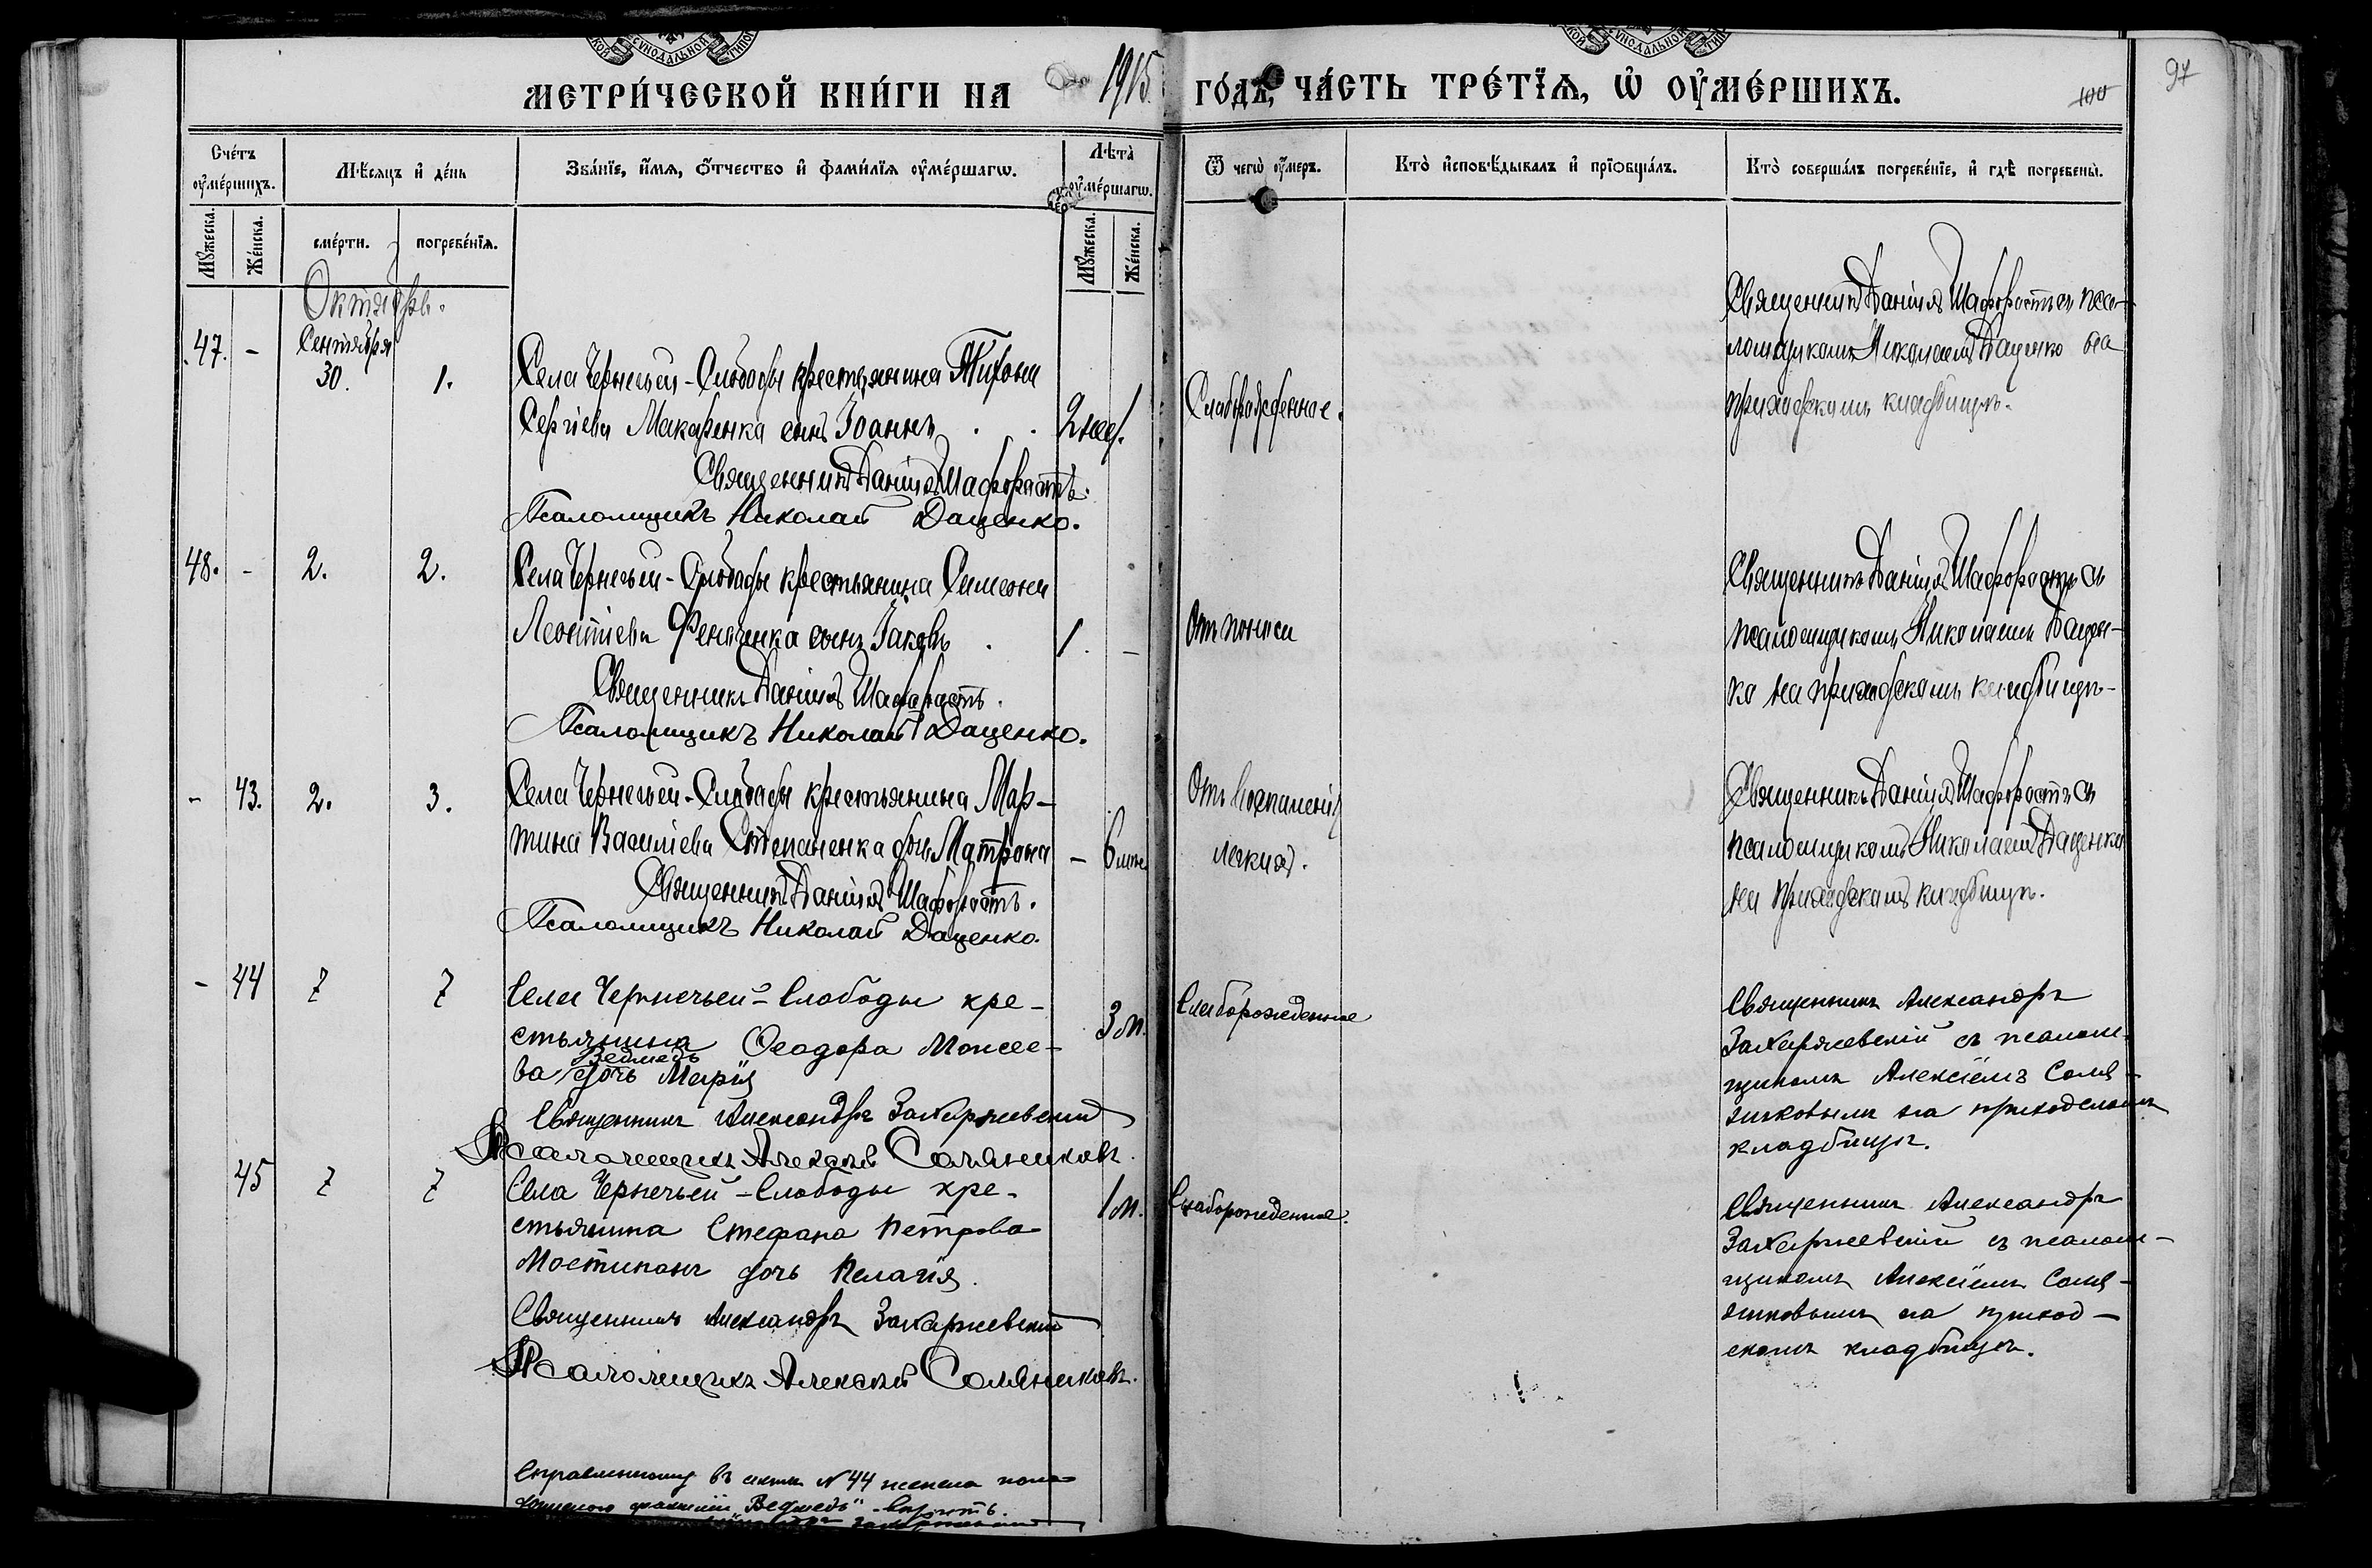 МЕТРИ́ЧЕСКОЙ КНИ́ГИ НА 1915 ГО́ДЪ, ЧА́СТЬ ТРЕ́ТЇѦ, Ѡ҆ ОУ҆МЕ́РШИХЪ.
100
97
Сче́тъ оу҆ме́ршихъ.
Мѣ́сѧцъ и҆ де́нь
Зва́нїе, и҆́мѧ, ѻ҆́тчество и҆ фами́лїѧ оу҆ме́ршагѡ.
Лѣта̀ оу҆ме́ршагѡ.
Ѿ чегѡ̀ оу҆́меръ.
Кто̀ и҆сповѣ́дывалъ и҆ прїѻбща́лъ.
Кто̀ соверша́лъ погребе́нїе, и҆ гдѣ̀ погребены̀.
Мꙋ́жеска.
Же́нска.
сме́рти.
погребе́нїѧ.
Мꙋ́жеска.
Же́нска.
Октябрь.
47. - Сентября 30. 1.
Села Чернечьей-Слободы крестьянина Тихона
Сергіева Макаренка сынъ Іоаннъ . . 2 нед.
Священникъ Даніилъ Шафорастъ.
Псаломщикъ Николай Даценко.
Слаборожденное.
Священникъ Даніилъ Шафорастъ съ пса-
ломщикомъ Николаемъ Даценко на
приходскомъ кладбищѣ.
48. - 2. 2.
Села Чернечьей-Слободы крестьянина Симеона
Леонтіева Фенченка сынъ Іаковъ . 1. -
Священникъ Даніилъ Шафорастъ.
Псаломщикъ Николай Даценко.
Отъ поноса
Священникъ Даніилъ Шафорастъ съ
псаломщикомъ Николаемъ Дацен-
ко на приходскомъ кладбищѣ-
- 43. 2. 3.
Села Чернечьей-Слободы крестьянина Мар-
тина Василіева Степаненка дочь Матрона -
Священникъ Даніилъ Шафорастъ.
Псаломщикъ Николай Даценко.
Отъ воспаленія
легкихъ.
Священникъ Даніилъ Шафорастъ съ
псаломщикомъ Николаемъ Даценко
на приходскомъ кладбищѣ.
- 44 7 7
Села Чернечьей-Слободы кре-
стьянина Ѳеодора Моисее- 3 м.
Ведмедь
ва дочь Марія
Священникъ Александръ Захаржевскій
Псаломщикъ Алексѣй Соляниковъ.
Слаборожденное
Священникъ Александръ
Захаржевскій съ псалом-
щикомъ Алексіемъ Соля-
никовымъ на приходскомъ
кладбищѣ.
45 7 7
Села Чернечьей-Слободы кре-
стьянина Стефана Петрова 1 м.
Мостипанъ дочь Пелагія.
Священникъ Александръ Захаржевскій
Псаломщикъ Алексѣй Соляниковъ.
Слаборожденное.
Священникъ Александръ
Захаржевскій съ псалом-
щикомъ Алексіемъ Соля-
никовымъ на приход-
скомъ кладбищѣ.
въ № 44
"Ведмедь"